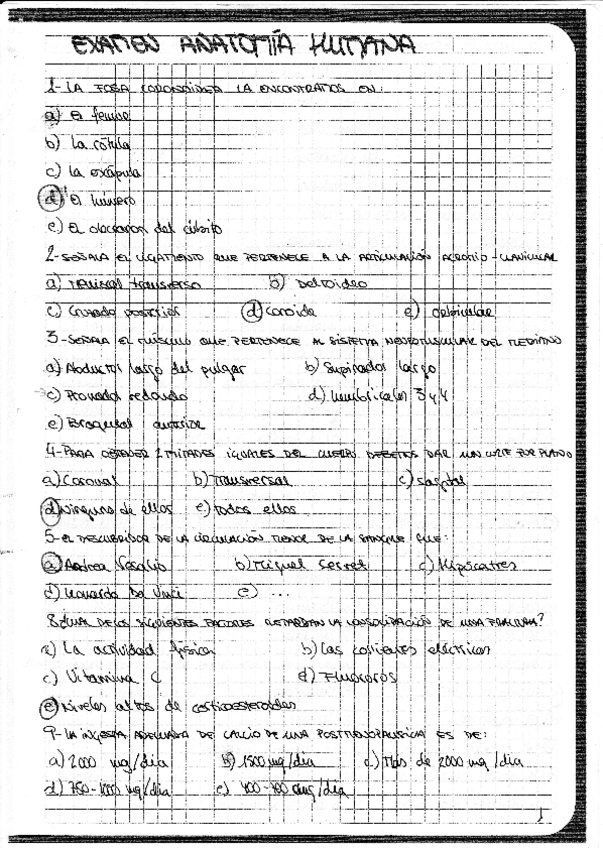 EXAMEN ANATOMÍA HUMANA
1- LA FOSA CORONOIDEA LA ENCONTRAMOS EN:
a) El femur
b) La rótula
c) La escápula
d) El húmero
e) El olecranon del cúbito
2- SEÑALA EL LIGAMENTO QUE PERTENECE A LA ARTICULACIÓN ACROMIO-CLAVICULAR
a) Meniscal transverso b) Deltoideo
c) Cruzado posterior d) Conoide e)
3- SEÑALA EL MÚSCULO QUE PERTENECE AL SISTEMA NEUROMUSCULAR DEL MEDIANO
a) Abductor largo del pulgar b) Supinador largo
c) Pronador redondo d) Lumbricales 3 y 4
e) Braquial anterior
4- PARA OBTENER 2 MITADES IGUALES DEL CUERPO DEBEMOS DAR UN CORTE POR PLANO
a) Coronal b) Transversal c) Sagital
d) Ninguno de ellos e) Todos ellos
5- EL DESCUBRIDOR DE LA CIRCULACIÓN MENOR DE LA SANGRE FUE:
a) Andrea Vesalio b) Miguel Servet c) Hipócrates
d) Leonardo Da Vinci e) ...
8- ¿CUAL DE LOS SIGUIENTES FACTORES RETARDAN LA CONSOLIDACIÓN DE UNA FRACTURA?
a) La actividad física b) Las corrientes eléctricas
c) Vitamina C d) Fluoruros
e) Niveles altos de corticoesteroides
9- LA INGESTA ADECUADA DE CALCIO DE UNA POSTMENOPAUSICA ES DE:
a) 2000 mg/día b) 1500 mg/día c) Más de 2000 mg/día
d) 750-1000 mg/día e)
1